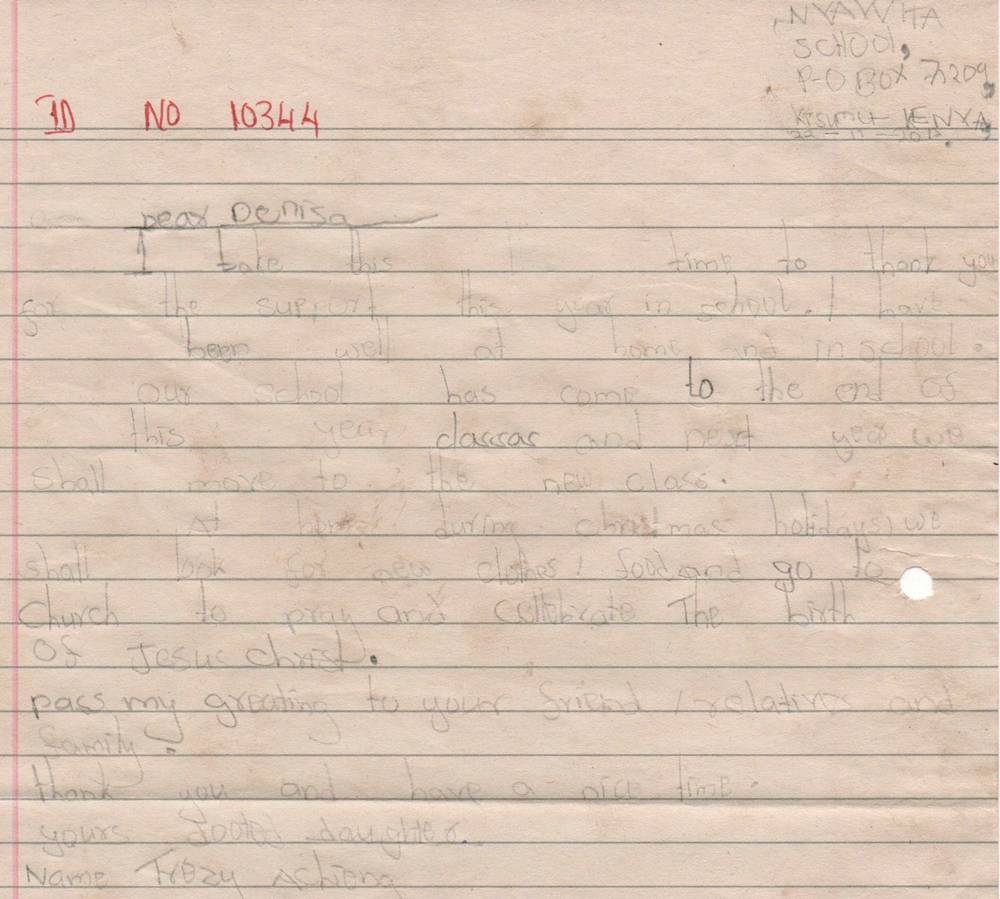 NYAWITA
SCHOOL,
P-O BOX 7209,
KISUMU- KENYA
ID NO 10344
Dear Denisa
I take this time to thank you
for the support this year in school. I have
been well at home and in school.
our school has come to the end of
this year classas and next year we
shall move to the new class.
At home during christmas holidays we
shall look for new clothes, food and go to
Church to pray and cellebrate The birth
Of Jesus christ.
pass my greating to your friend / relatives and
family.
thank you and have a nice time.
yours footed daughter.
Name Trezy Achieng